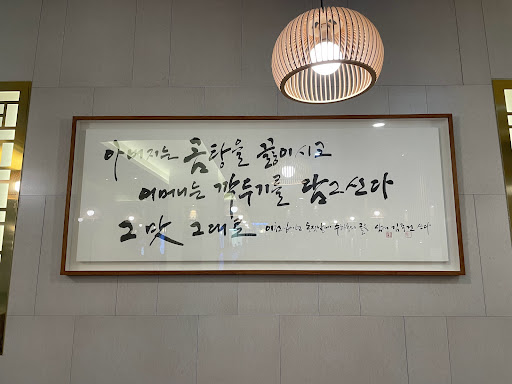 아버지는 곰탕을 끓이시고
어머니는 깍두기를 담그신다
그 맛 그대로